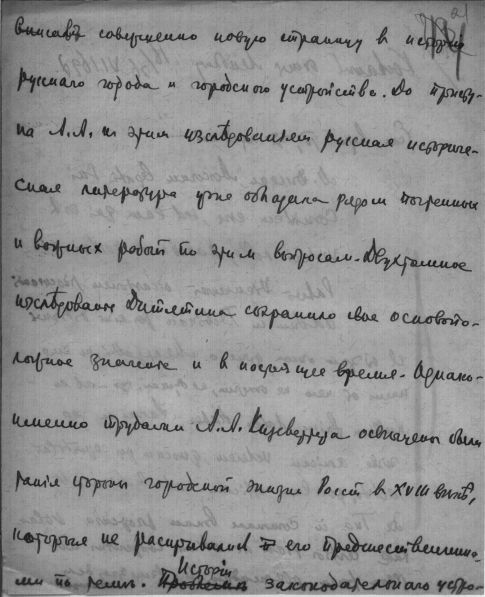 вписавъ совершенно новую страницу в исторію
русскаго города и городского устройства. До присту-
па А.А. к этим изслѣдованіям русская историче-
ская литература уже обладала рядом почтенных
и важных работ по этим вопросам. Двухтомное
изслѣдованіе Дитятина сохранило свое основопо-
ложное значеніе и в настоящее время. Однако
именно трудами А.А. Кизеветтера освѣщены были
такія стороны городской жизни Россіи в XVIII вѣкѣ,
которыя не раскрывались его предшественни-
ками по темѣ. Исторія законодательнаго устро-